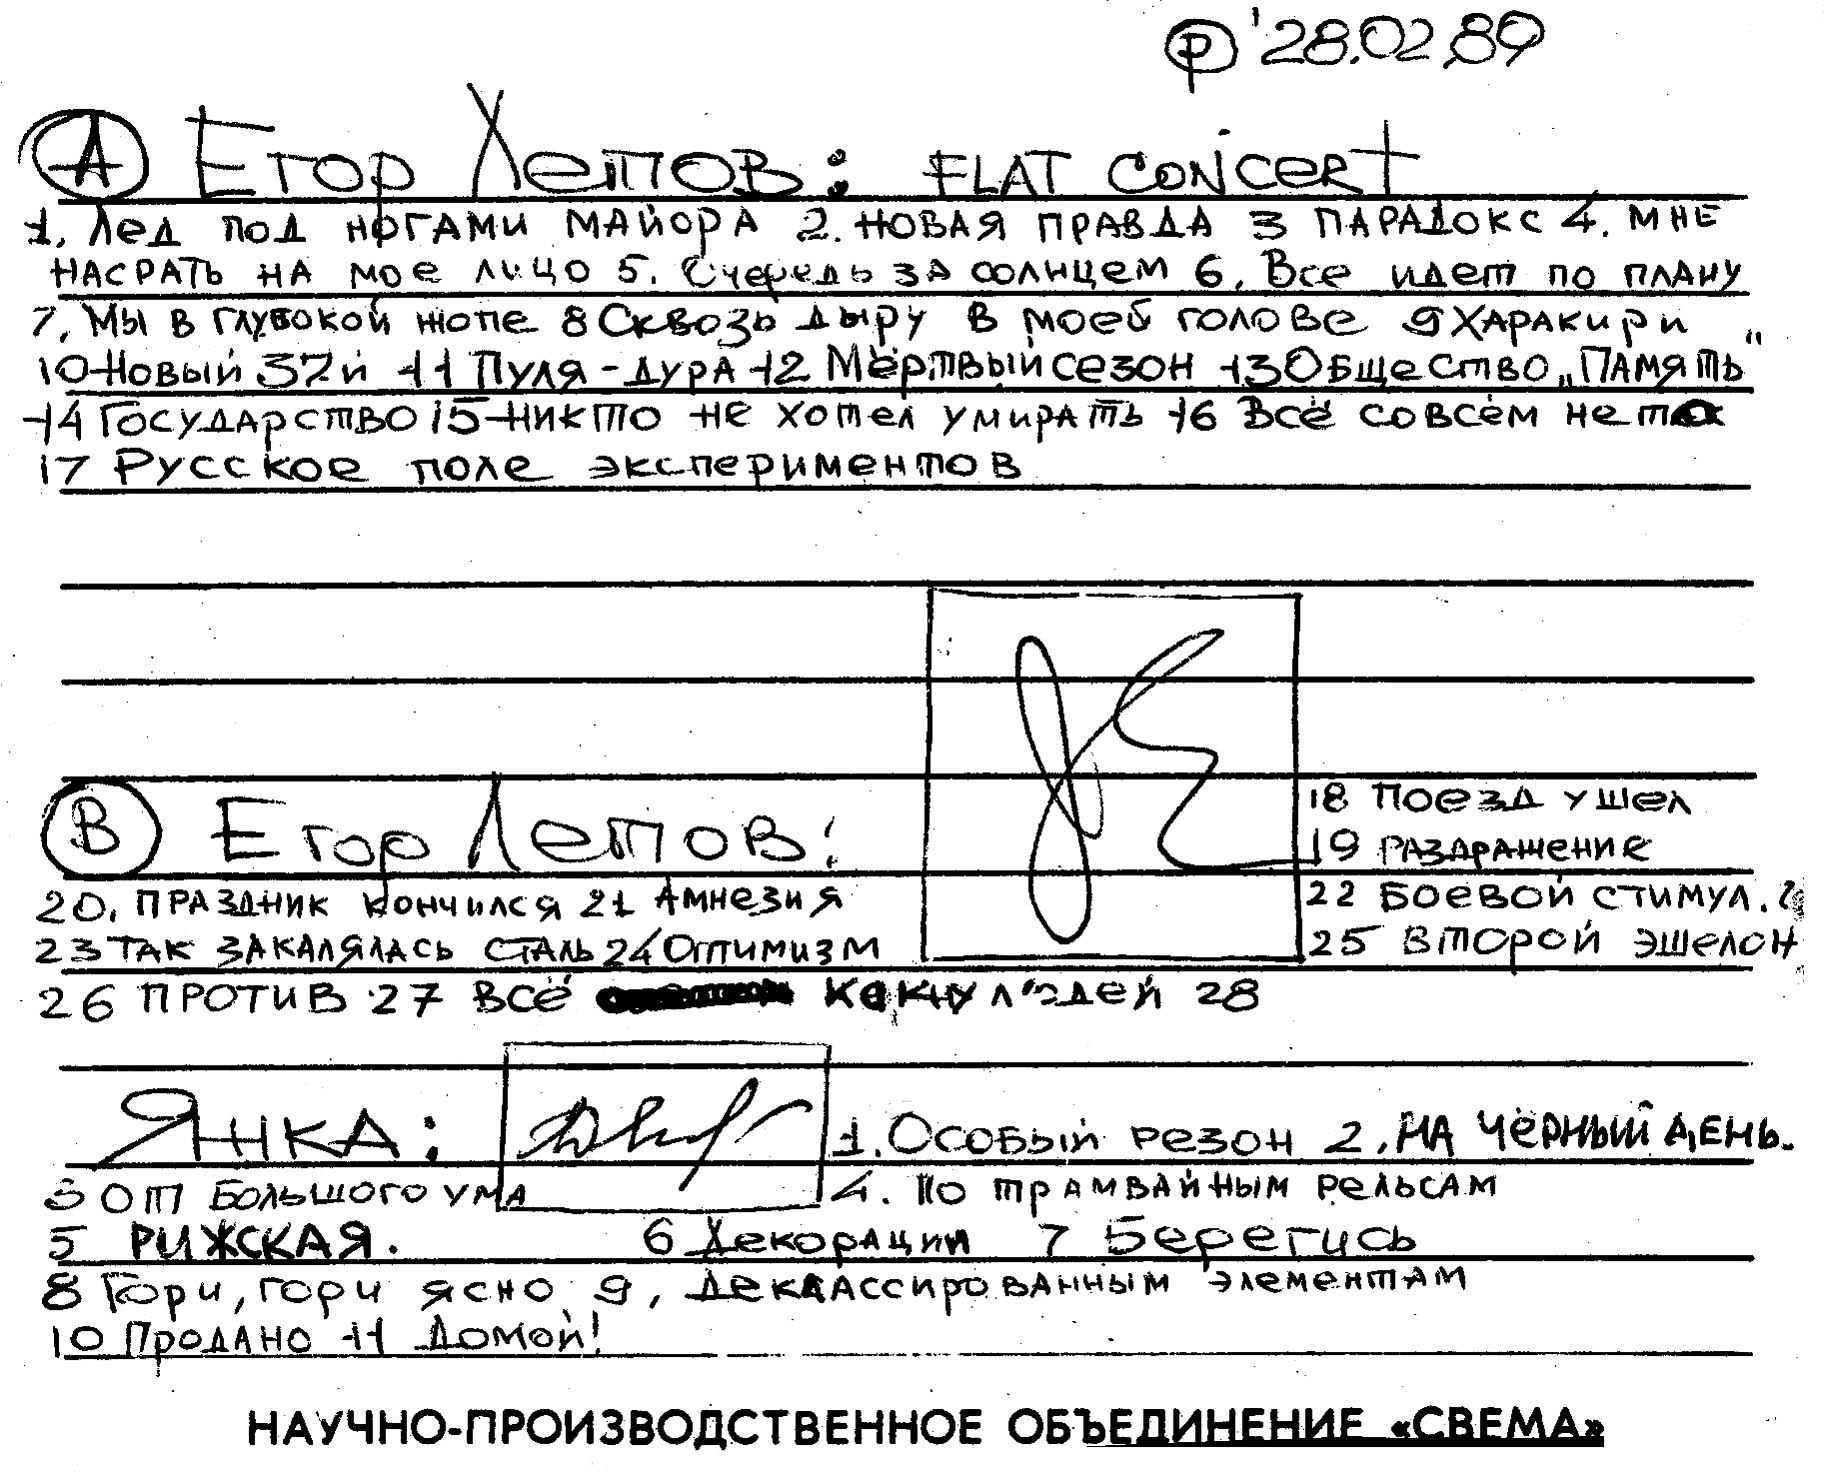 Ⓟ '28.02.89
Ⓐ Егор Летов: FLAT CONCERT
1. Лед под ногами майора 2. Новая правда 3 Парадокс 4. Мне
насрать на мое лицо 5. Очередь за солнцем 6. Все идет по плану
7. Мы в глубокой жопе 8 Сквозь дыру в моей голове 9 Харакири
10 Новый 37й 11 Пуля-дура 12 Мёртвый сезон 13 Общество „Память"
14 Государство 15 Никто не хотел умирать 16 Всё совсем не так
17 Русское поле экспериментов
Ⓑ Егор Летов:
18 Поезд ушел
19 Раздражение
20. Праздник кончился 21 Амнезия 22 Боевой стимул.
23 Так закалялась сталь 24 Оптимизм 25 Второй эшелон
26 Против 27 Всё как у людей 28
Янка: 1. Особый резон 2. На чёрный день.
3 От большого ума 4. По трамвайным рельсам
5 Рижская. 6 Декорации 7 Берегись
8 Гори, гори ясно 9, Деклассированным элементам
10 Продано 11 Домой!
НАУЧНО-ПРОИЗВОДСТВЕННОЕ ОБЪЕДИНЕНИЕ «СВЕМА»